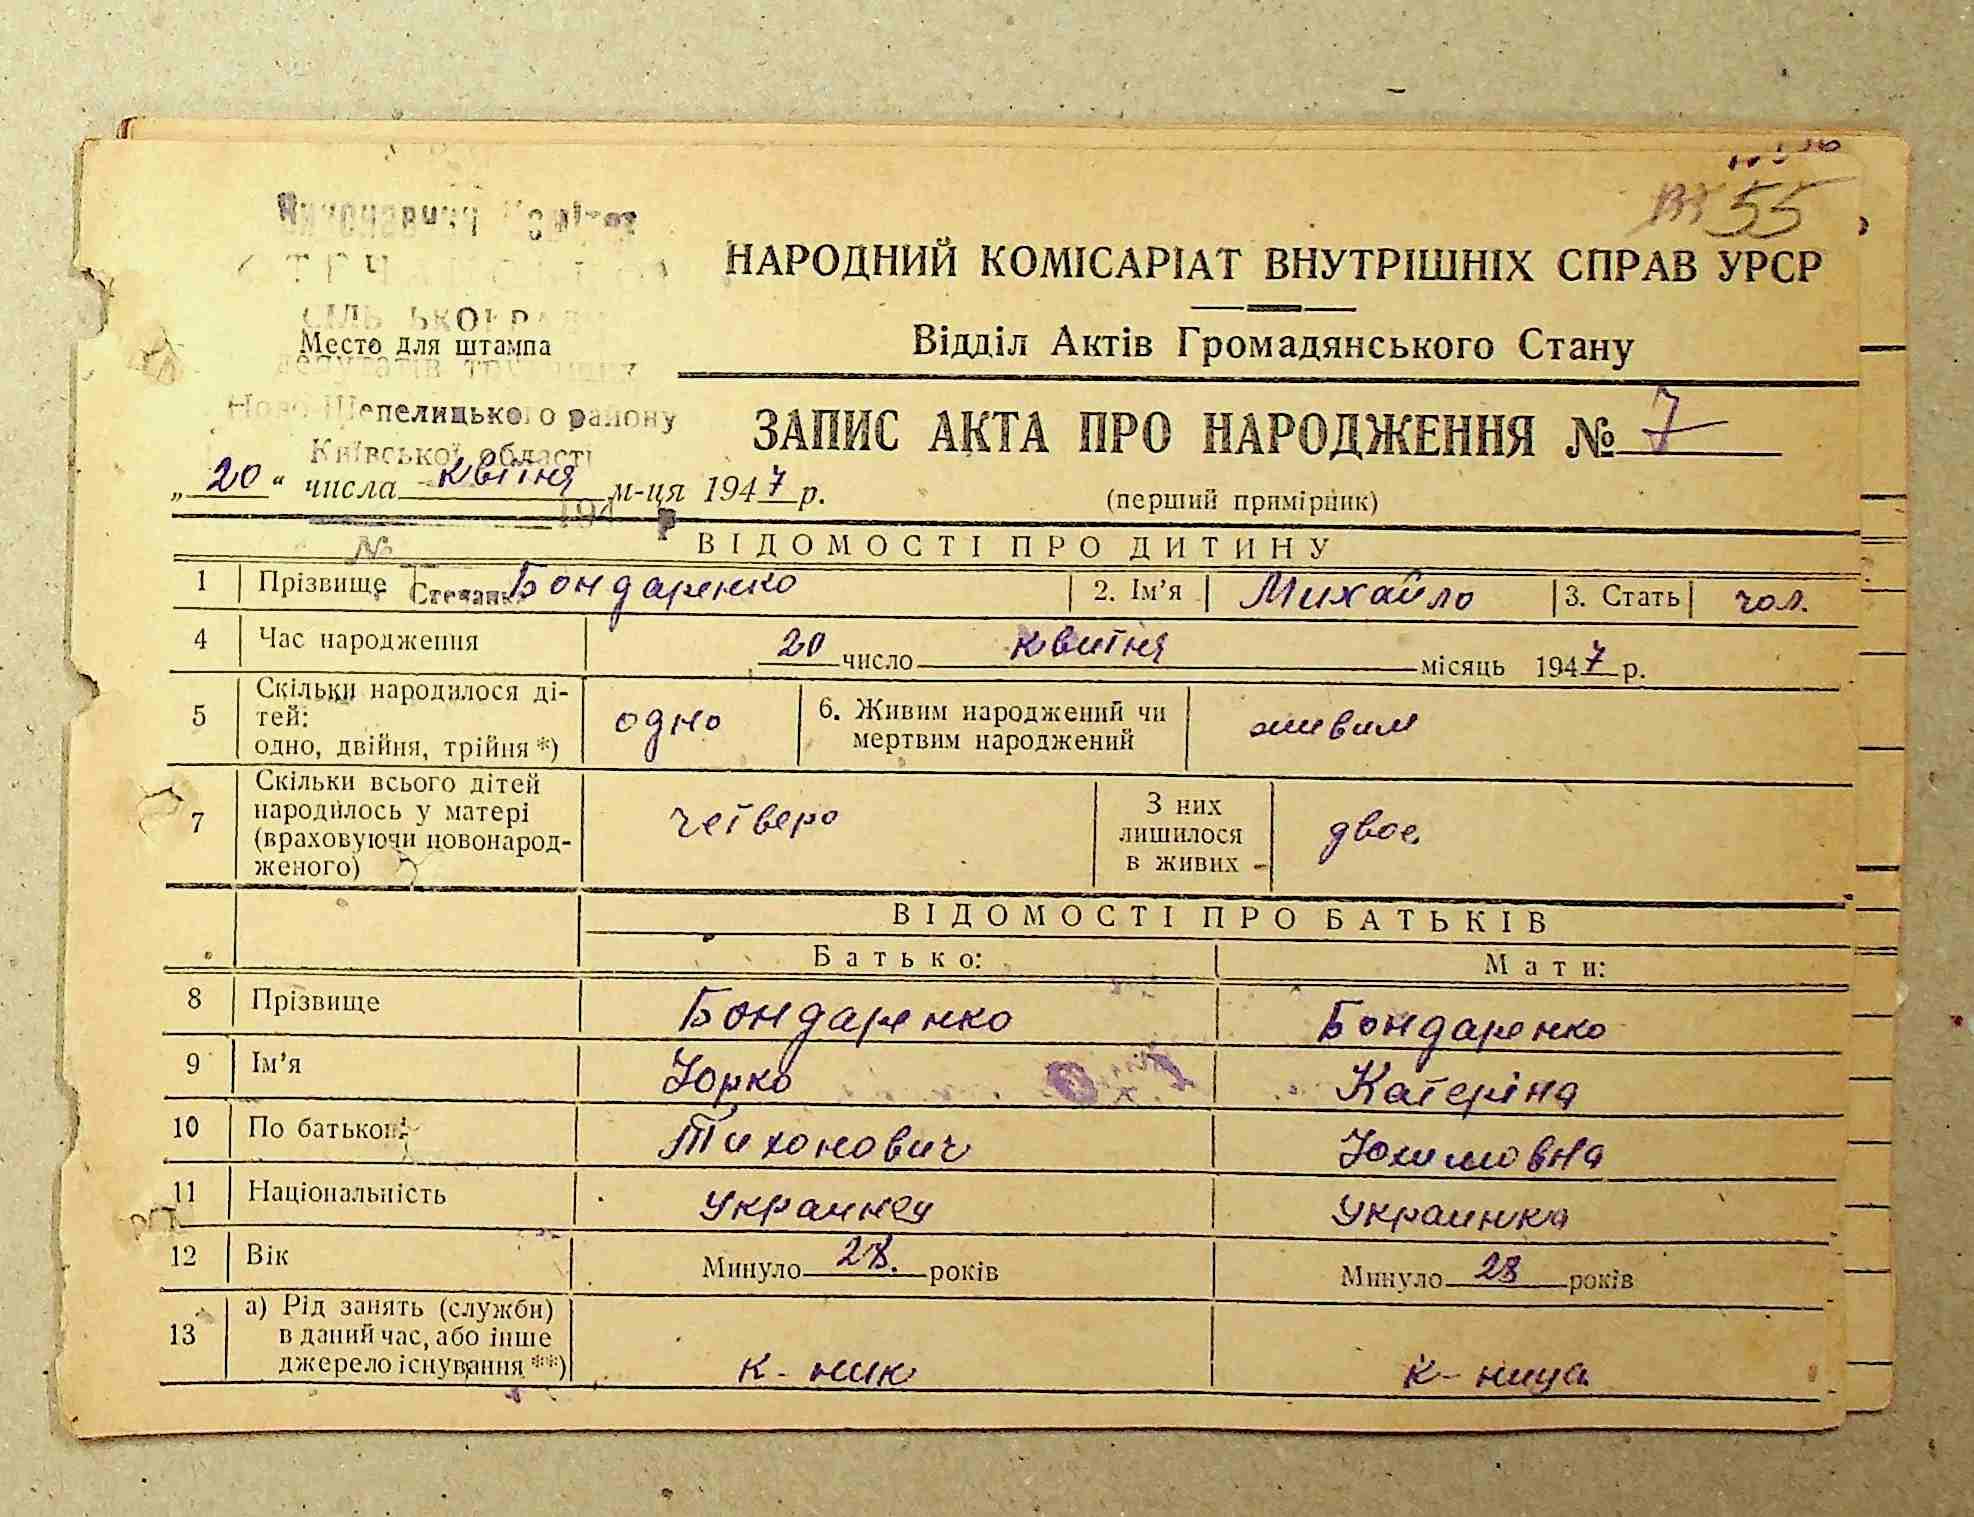 вх 55
Виконавчий Комітет
СТЕЧАНСЬКОЇ
СІЛЬСЬКОЇ РАДИ
Место для штампа
депутатів трудящих
Ново-Шепелицького району
Київської області
НАРОДНИЙ КОМІСАРІАТ ВНУТРІШНІХ СПРАВ УРСР
Відділ Актів Громадянського Стану
ЗАПИС АКТА ПРО НАРОДЖЕННЯ № 7
„20“ числа квітня м-ця 1947 р.
(перший примірник)
194 р
№
ВІДОМОСТІ ПРО ДИТИНУ
1 Прізвище Бондаренко 2. Ім’я Михайло 3. Стать чол.
4 Час народження 20 число квитня місяць 1947 р.
5 Скільки народилося ді-
тей:
одно, двійня, трійня *) одно 6. Живим народжений чи
мертвим народжений живим
7 Скільки всього дітей
народилось у матері
(враховуючи новонарод-
женого) четверо З них
лишилося
в живих двое
ВІДОМОСТІ ПРО БАТЬКІВ
Батько: Мати:
8 Прізвище Бондаренко Бондаренко
9 Ім’я Юрко Катеріна
10 По батькові Тихонович Юхимовна
11 Національність украинец украинка
12 Вік Минуло 28. років Минуло 28 років
13 а) Рід занять (служби)
в даний час, або інше
джерело існування **) к-ник к-ница